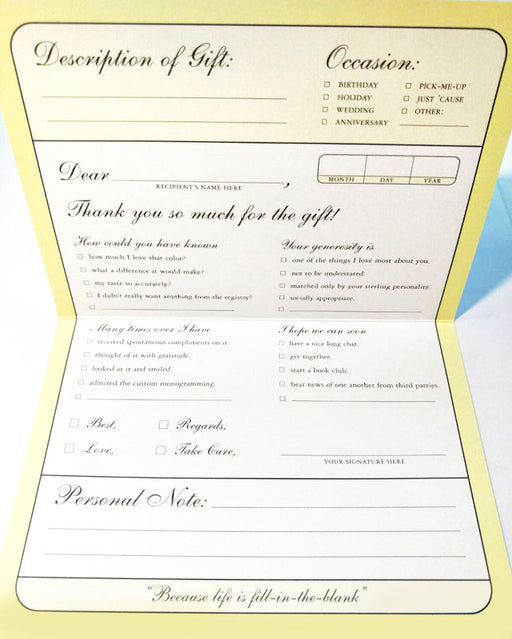 Description of Gift:
Occasion:
BIRTHDAY
HOLIDAY
WEDDING
ANNIVERSARY
PICK-ME-UP
JUST 'CAUSE
OTHER:
Dear ,
RECIPIENT'S NAME HERE
MONTH DAY YEAR
Thank you so much for the gift!
How could you have known
how much I love that color?
what a difference it would make?
my taste so accurately?
I didn't really want anything from the registry?
Your generosity is
one of the things I love most about you.
not to be understated.
matched only by your sterling personality.
socially appropriate.
Many times over I have
received spontaneous compliments on it.
thought of it with gratitude.
looked at it and smiled.
admired the custom monogramming.
I hope we can soon
have a nice long chat.
get together.
start a book club.
hear news of one another from third parties.
Best, Regards,
Love, Take Care,
YOUR SIGNATURE HERE
Personal Note:
"Because life is fill-in-the-blank"